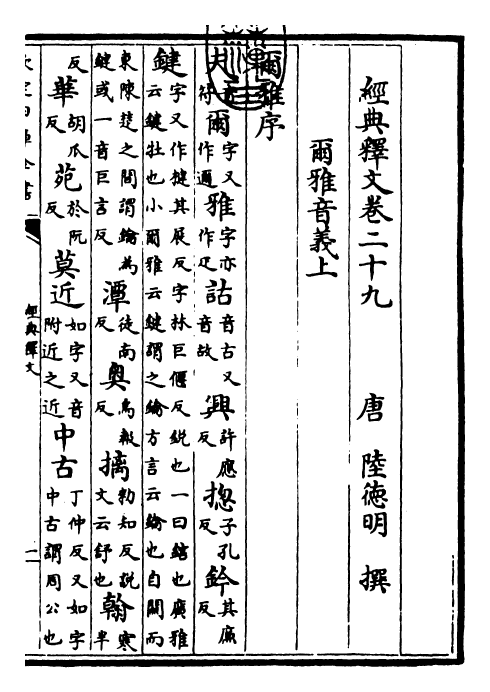 經典釋文卷二十九
唐 陸德明 撰
爾雅音義上
爾雅序
夫音符爾字又作邇雅字亦作疋詁音古又音故興許應反揔子孔反鈐其廉反
鍵字又作揵其展反字林巨偃反鋭也一曰鎋也廣雅云鍵牡也小爾雅云鍵謂之鑰方言云鑰也自關而
東陳楚之間謂鑰為鍵或一音巨言反潭徒南反奥烏報反摛勑知反説文云舒也翰寒半
反華胡瓜反苑於阮反莫近如字又音附近之近中古丁仲反又如字中古謂周公也
經典釋文
一